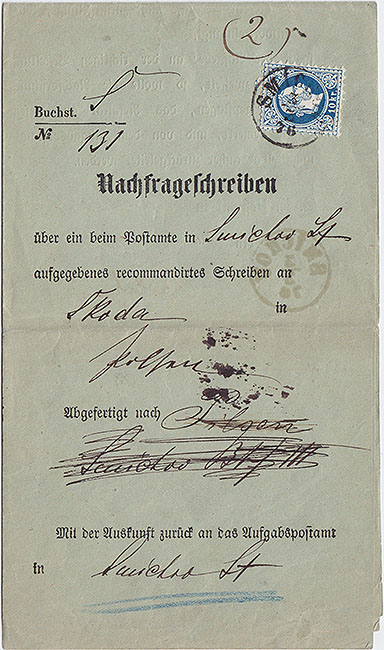 (2)
SMIC
76
10 kr.
Buchst. S
№ 131
Nachfrageschreiben
über ein beim Postamte in Smichov Stf
aufgegebenes recommandirtes Schreiben an
Skoda in
Pilsen
Abgefertigt nach Pilsen
Smichov Bhf III
Mit der Auskunft zurück an das Aufgabspostamt
in Smichov Stf